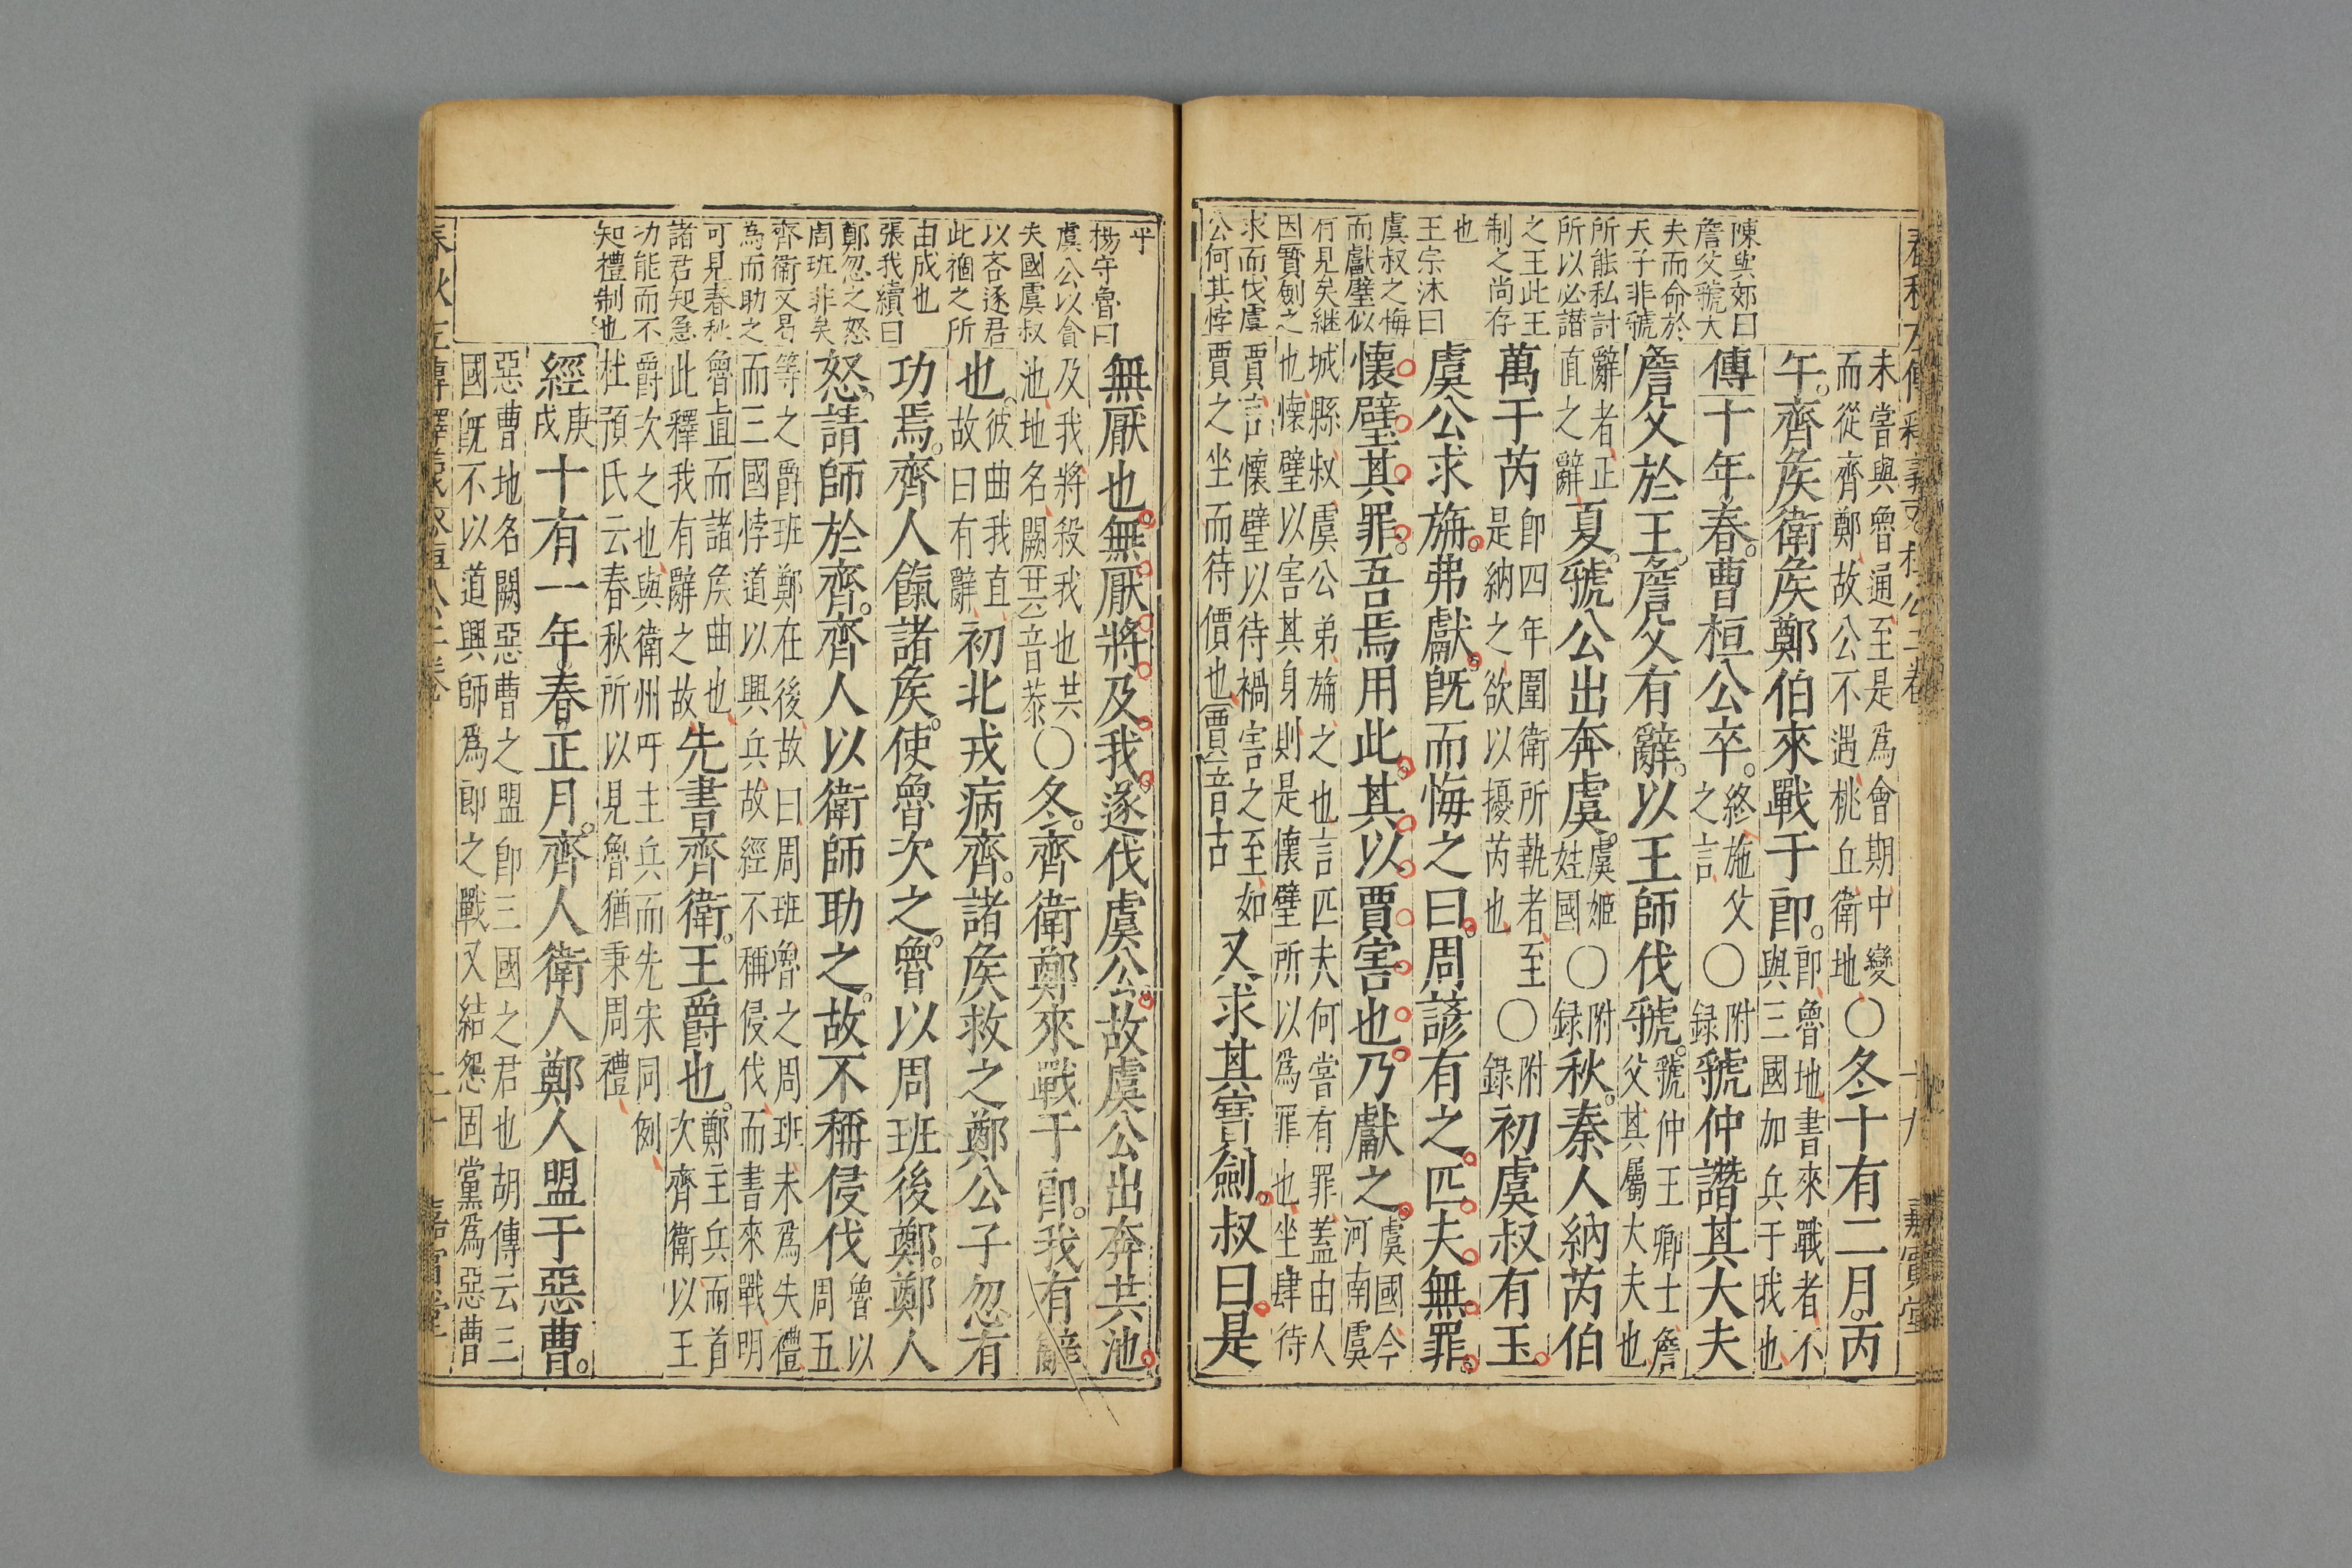 陳與郊曰
詹父虢大
夫而命於
天子非虢
所能私討
所以必譖
之王此王
制之尚存
也
王宗沐曰
虞叔之悔
而獻璧似
有見矣継
因賈劍之
求而伐虞
公何其悖
未嘗與魯通至是爲會期中變
而從齊鄭故公不遇桃丘衛地
〇冬十有二月丙
午齊侯衛侯鄭伯來戰于郎
郎魯地書來戰者不
與三國加兵于我也
傳十年春曹桓公卒
終施父
之言
〇附
録
虢仲譖其大夫
詹父於王詹父有辭以王師伐虢
虢仲王卿士詹
父其屬大夫也
辭者正
直之辭
夏虢公出奔虞
虞姬
姓國
〇附
録
秋秦人納芮伯
萬于芮
卽四年圍衛所執者至
是納之欲以擾芮也
〇附
録
初虞叔有玉
虞公求旃弗獻旣而悔之曰周諺有之匹夫無罪
懷璧其罪吾焉用此其以賈害也乃獻之
虞國今
河南虞
城縣叔虞公弟旃之也言匹夫何嘗有罪蓋由人
也懷璧以害其身則是懷璧所以爲罪也坐肆待
賈言懷璧以待禍害之至如
賈之坐而待價也賈音古
又求其寳劍叔曰是
平
楊守魯曰
虞公以貪
失國虞叔
以吝逐君
此禍之所
由成也
張我續曰
鄭忽之怒
周班非矣
齊衛又曷
為而助之
可見春秋
諸君知急
功能而不
知禮制也
無厭也無厭將及我遂伐虞公故虞公出奔共池
及我將殺我也共
池地名闕共音恭
〇冬齊衛鄭來戰于郎我有辭
也
彼曲我直
故曰有辭
初北戎病齊諸侯救之鄭公子忽有
功焉齊人餼諸侯使魯次之魯以周班後鄭鄭人
怒請師於齊齊人以衛師助之故不稱侵伐
魯以
周五
等之爵班鄭在後故曰周班魯之周班未爲失禮
而三國悖道以興兵故經不稱侵伐而書來戰明
魯直而諸侯曲也
此釋我有辭之故
先書齊衛王爵也
鄭主兵而首
次齊衛以王
爵次之也與衛州吁主兵而先宋同例
杜預氏云春秋所以見魯猶秉周禮
經
庚
戌
十有一年春正月齊人衛人鄭人盟于惡曹
惡曹地名闕惡曹之盟卽三國之君也胡傳云三
國旣不以道興師爲郎之戰又結怨固黨爲惡曹